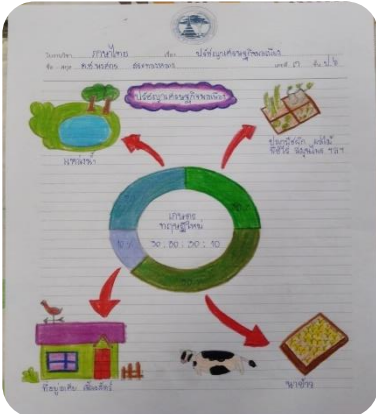 ภาษาไทย เรื่อง ปรัชญาเศรษฐกิจพอเพียง
ชื่อ สกุล เลขที่ ๓ ชั้น ป.๖
ปรัชญาเศรษฐกิจพอเพียง
แหล่งน้ำ
ปลูกพืชผัก ผลไม้
พืชไร่ สมุนไพร ฯลฯ
เกษตร
ทฤษฎีใหม่
30 : 30 : 30 : 10
ที่อยู่อาศัย เลี้ยงสัตว์
นาข้าว